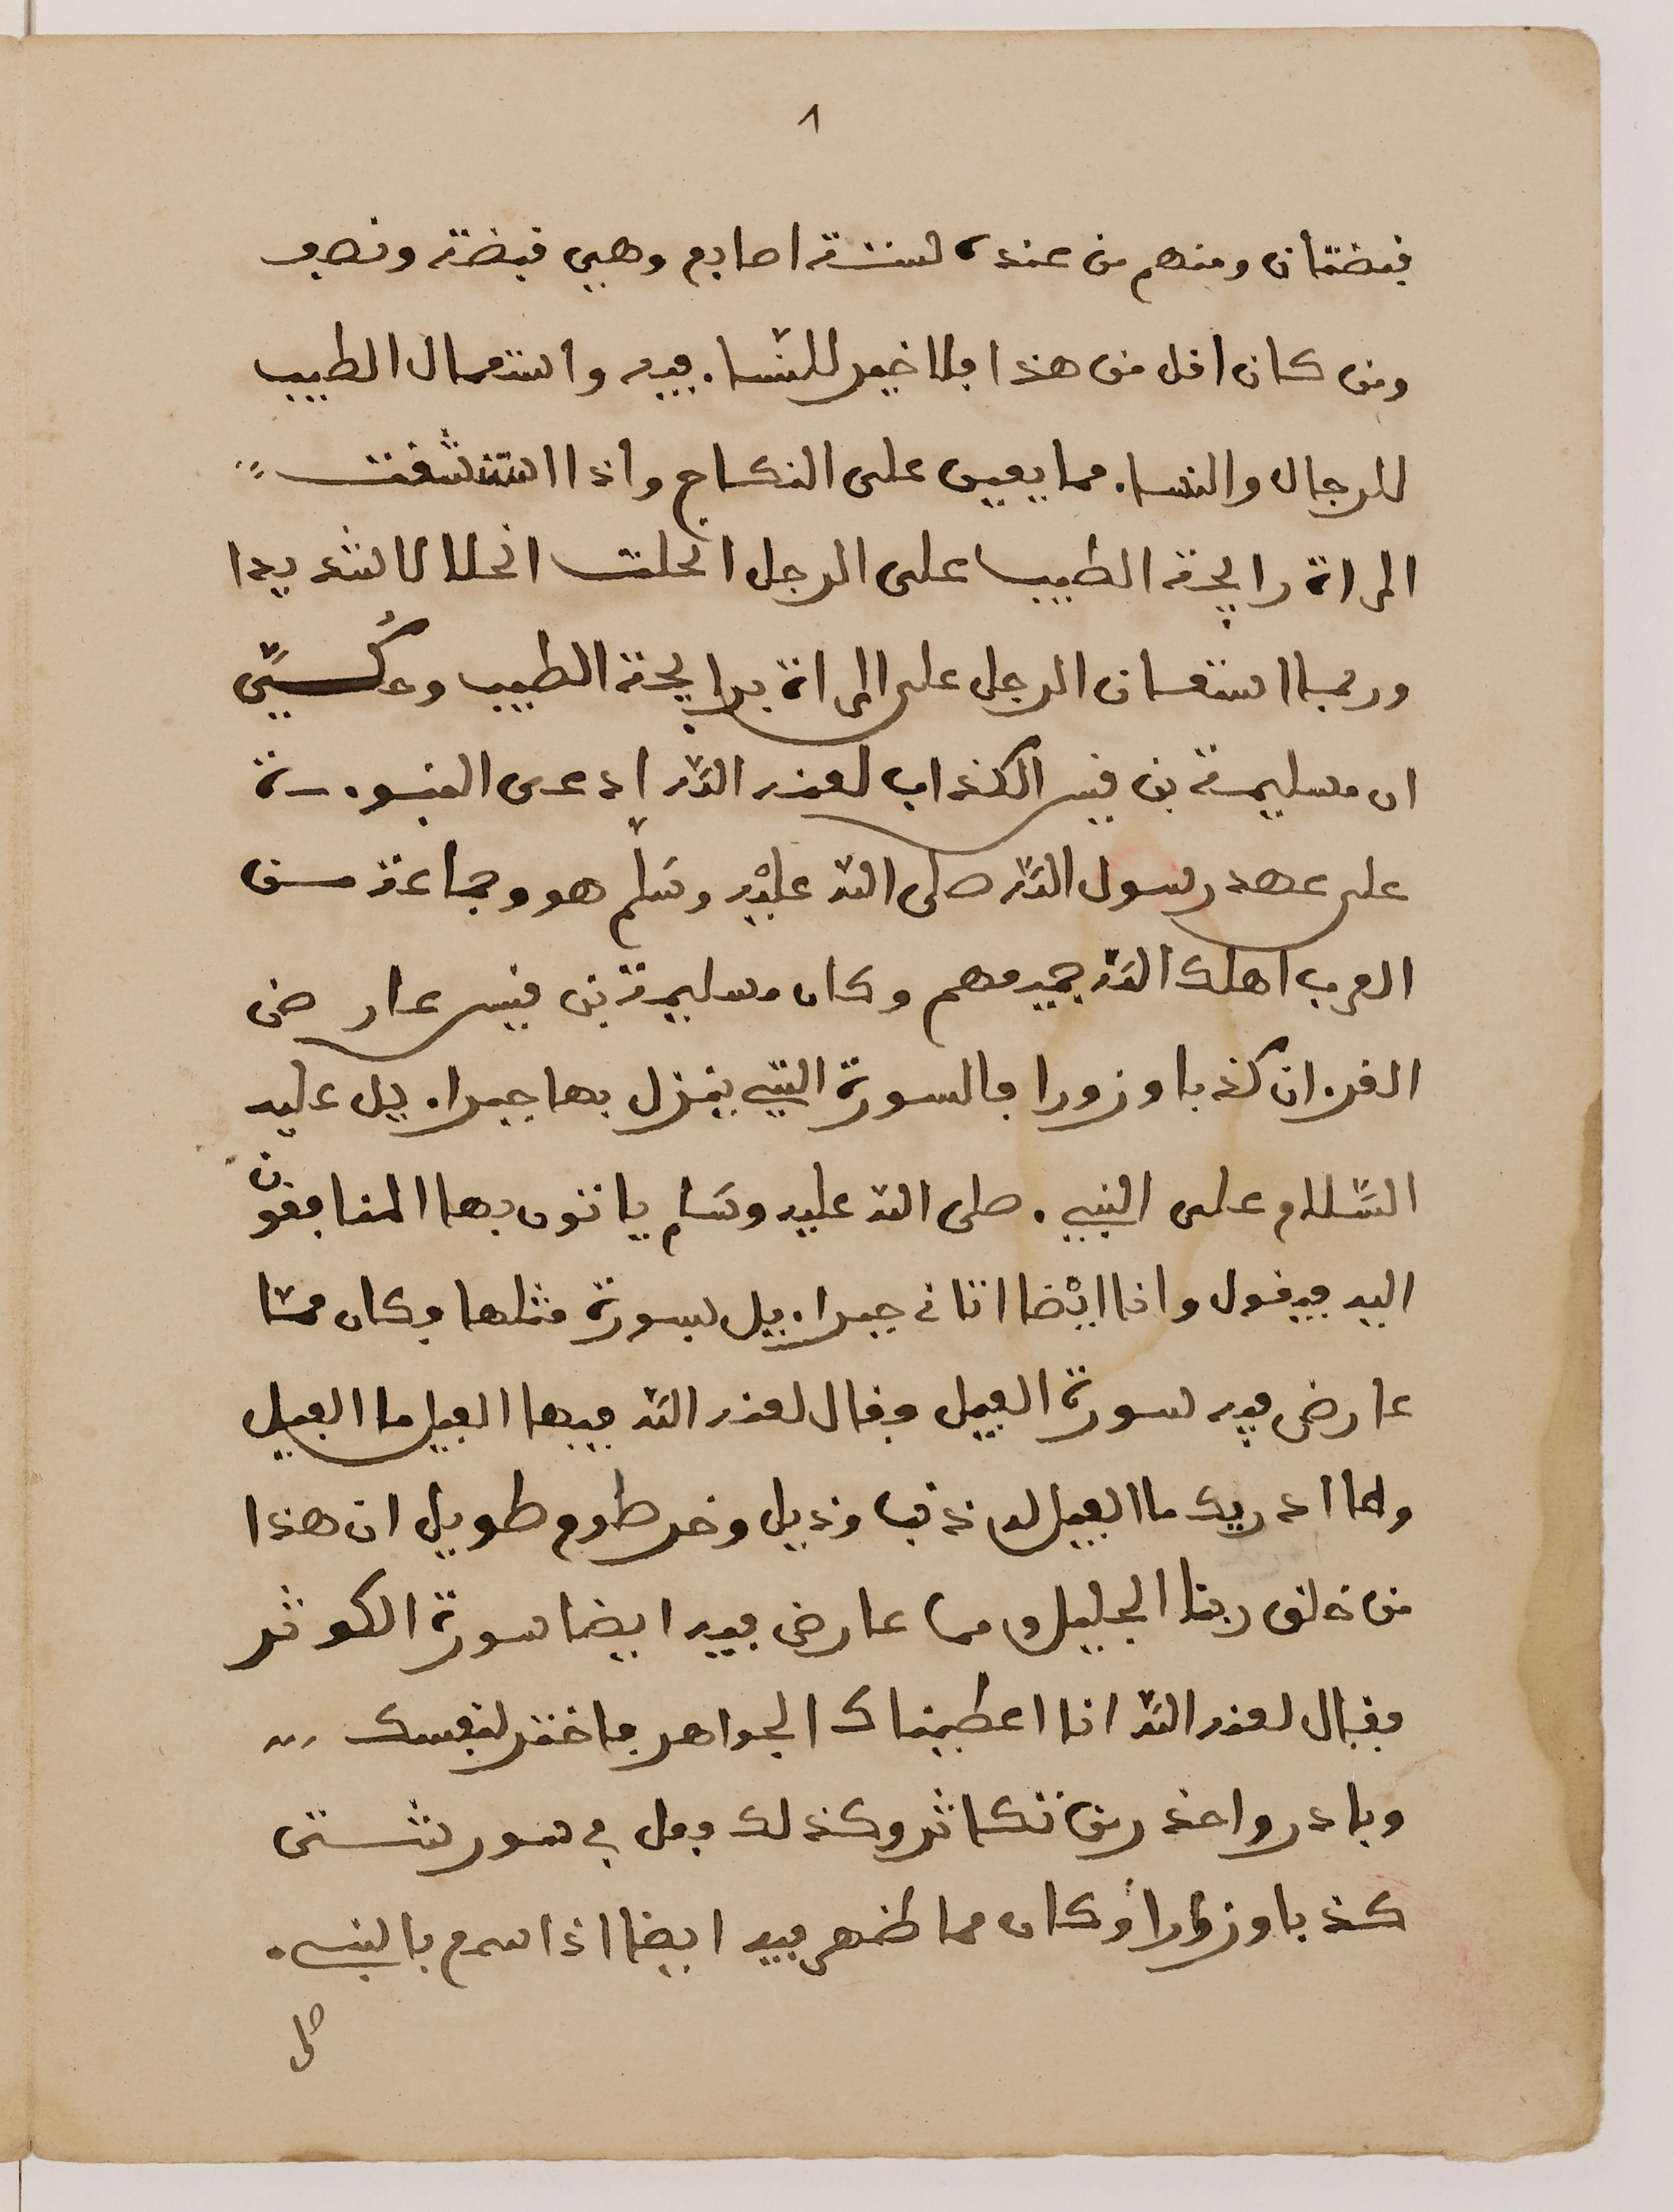 ٨
قبضتان ومنهم من عنده ستة اصابع وهي قبضة ونصف
ومن كان اقل من هذا فلا خير للنسا. فيه واستعمال الطيب
للرجال والنسا. مما يعين على النكاح واذا استنشقت
المراة رايحة الطيب على الرجل انحلت انحلالا شديدا
وربما استعان الرجل على المراة برايحة الطيب وحُكِيَ
ان مسليمة بن قيس الكذاب لعنه اللّه ادعى النبو.ة
على عهد رسول اللّه صلى اللّه عليْه وسَلّم هو وجماعة من
العرب اهلك اللّه جميعهم وكان مسليمة بن قيس عارض
القر.ان كذبا وزورا فالسورة التي ينزل بها جبرا.يل عليه
السَّلام على النبي. صلى اللّه عليه وسَلم ياتون بها المنافقون
اليه فيقول وانا ايْضا اتاني جبرا.يل بسورة مثلها وكان ممّا
عارض فيه سورة الفيل فقال لعنه اللّه فيها الفيل ما الفيل
وما ادريك ما الفيل له ذنب وذيل وخرطوم طويل ان هذا
من خلق ربنا الجليل ومما عارض فيه ايضا سورة الكوثر
فقال لعنه اللّه انا اعطيناك الجواهر فاختر لنفسك
وبادر واحذر من تكاثر وكذلك فعل في سور شتى
كذبا وزوراً وكان مما ظهر فيه ايضا اذا سمع بالنبي.
صلى